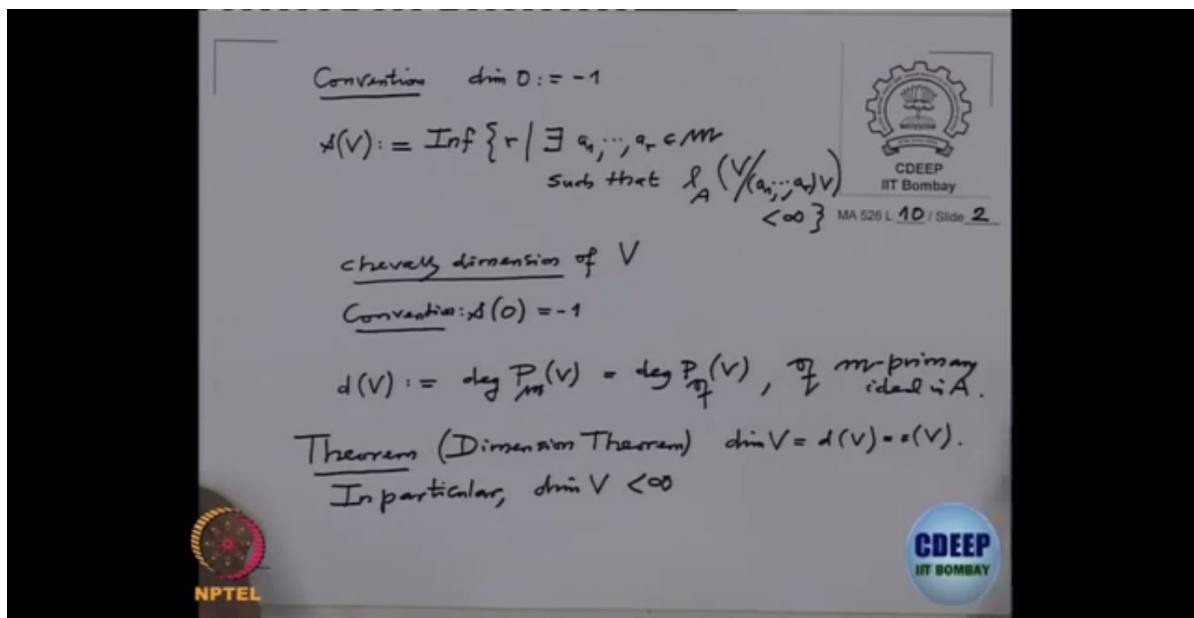 Convention dim 0 := -1
s(V) := Inf { r | ∃ a₁, ..., aᵣ ∈ 𝔪
such that ℓ_A (V/(a₁, ..., aᵣ)V)
< ∞ }
CDEEP
IIT Bombay
MA 526 L 10 / Slide 2
Chevally dimension of V
Convention: s(0) = -1
d(V) := deg P_𝔪(V) = deg P_𝔮(V), 𝔮 𝔪-primary
ideal in A.
Theorem (Dimension Theorem) dim V = d(V) = s(V).
In particular, dim V < ∞
NPTEL
CDEEP
IIT BOMBAY